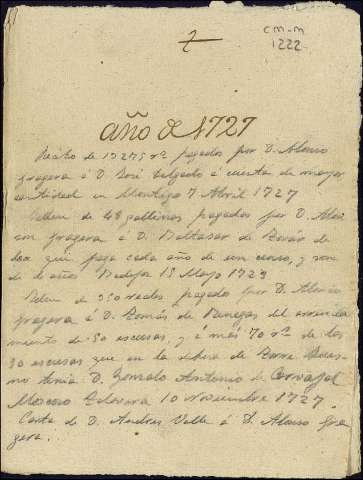 2
CM-M
1222
año de 1727
Recibo de 13275 rs pagados por D. Alonso
Fragera á D. José Delgado á cuenta de mayor
cantidad en Montijo 7 Abril 1727
de 48 gallinas pagados por D. Alon
so Fragera á D. Baltasar de
que paga cada año de un censo, y son
de 6 años Mayo
de 550 reales pagados por D. Alonso
Fragera á D. Román de Vanegas del arrenda
miento de 50 escusas, y á más 70 rs de las
20 escusas que en la
mo tenia D. Gonzalo Antonio de Carvajal
Moscoso 10 Noviembre 1727.
Carta de D. Andres Valle á D. Alonso Fra
gera.